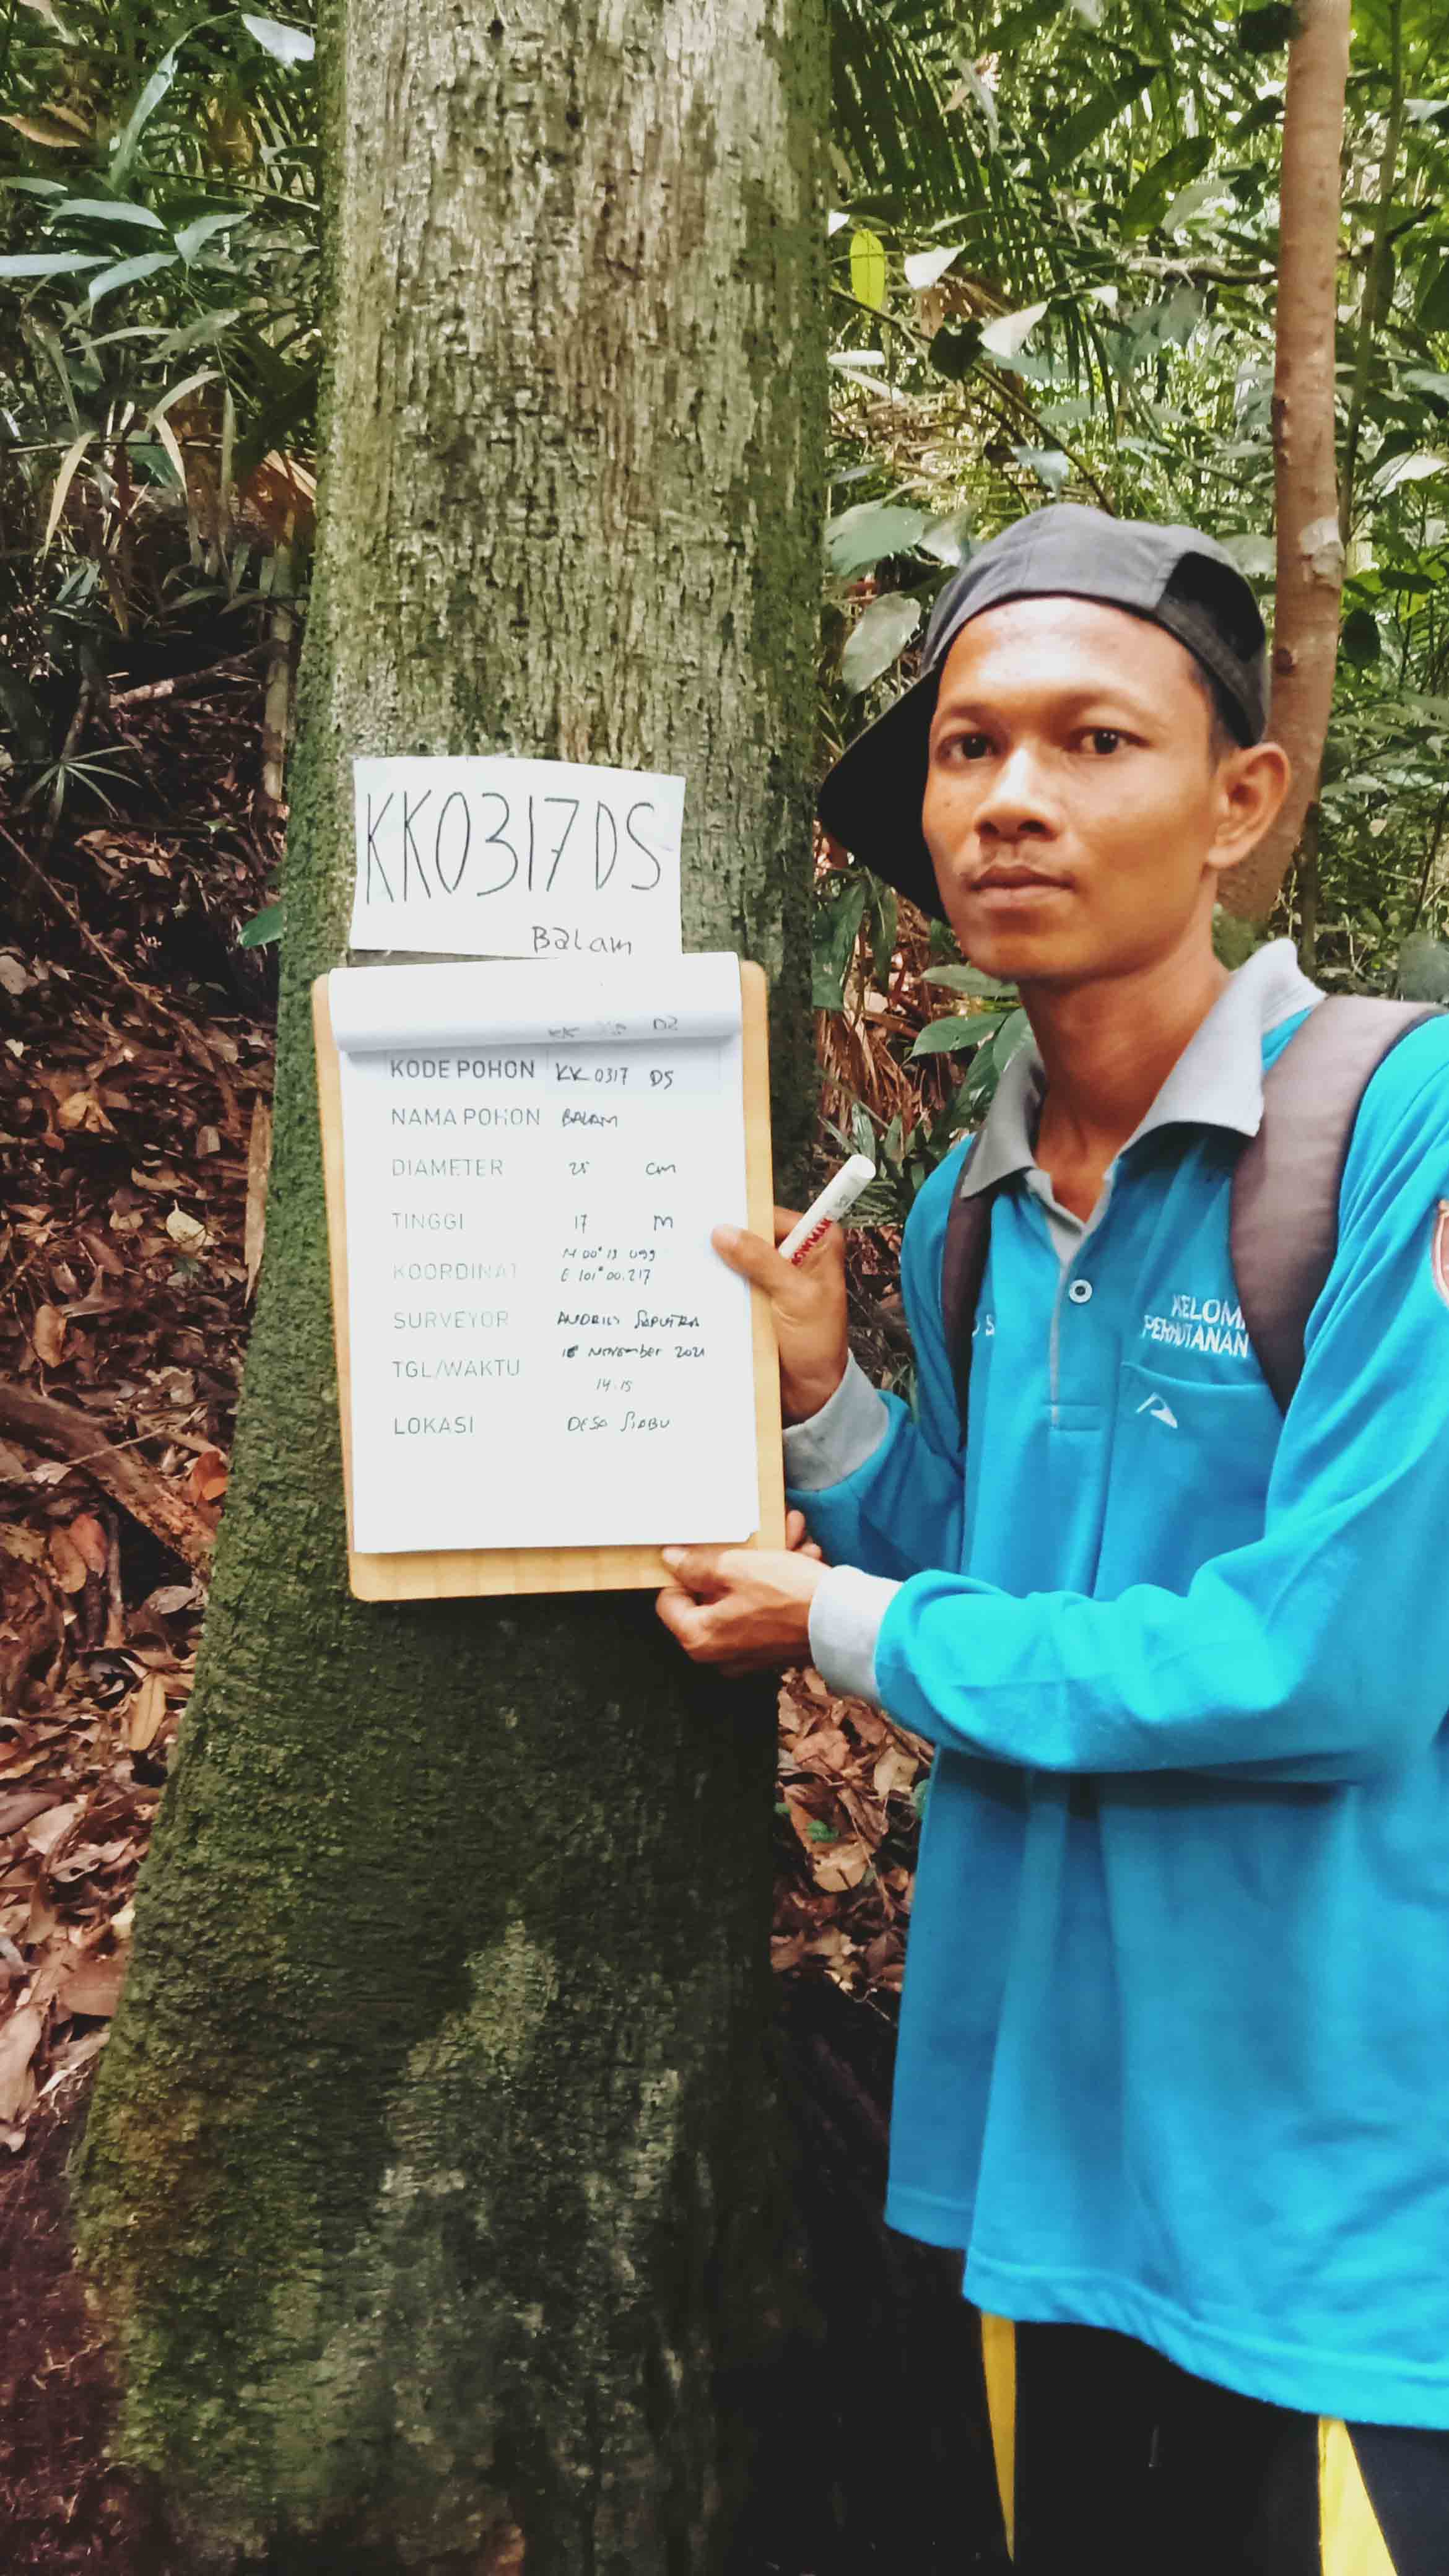 KK0317DS
Balam
KODE POHON KK 0317 DS
NAMA POHON BALAM
DIAMETER cm
TINGGI 17 M
KOORDINAT N 00° 13 099
E 101° 00.217
SURVEYOR SAPUTRA
TGL/WAKTU November 2021
14:15
LOKASI DESA SIABU
KELOM
PERHUTANAN